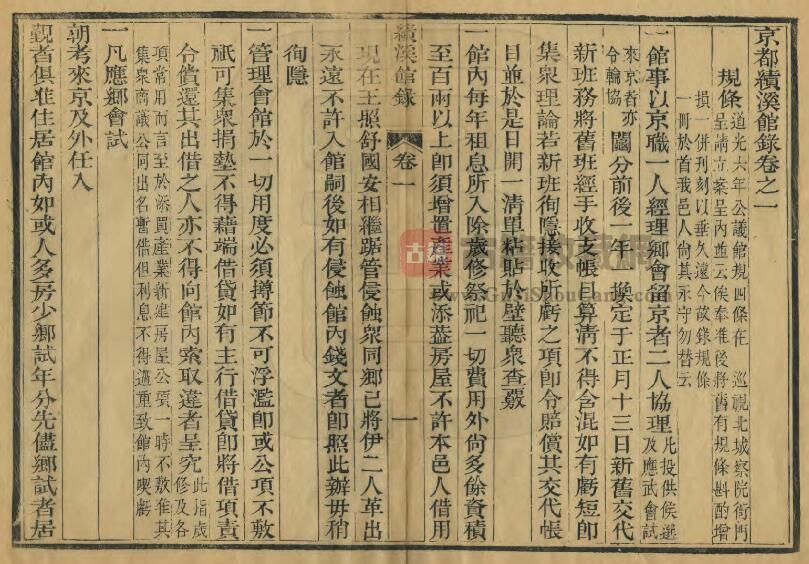 京都績溪館錄卷之一
規條道光六年公議館規四條在 巡視北城察院衙門
呈請立案呈內並云俟奉准後將舊有規條斟酌增
損一併刊刻以垂久遠今故錄規條
一冊於首我邑人尚其永守勿替云
一館事以京職一人經理鄉會留京者二人協理凡投供候選及應武會試
來京者亦令輪協 闈分前後 年一換定于正月十三日新舊交代
新班務將舊班經手收支帳目算清不得含混如有虧短即
集衆理論若新班徇隱接收所虧之項即令賠償其交代帳
目並於是日開一清單粘貼於壁聽衆查覈
一館內每年租息所入除歲修祭祀一切費用外尚多餘資積
至百兩以上即須增置產業或添蓋房屋不許本邑人借用
績溪館錄 卷一 一
現在王照舒國安相繼踞管侵蝕衆同鄉已將伊二人革出
永遠不許入館嗣後如有侵蝕館內錢文者即照此辦毋稍
徇隱
一管理會館於一切用度必須撙節不可浮濫即或公項不敷
祇可集衆捐墊不得藉端借貸如有主行借貸即將借項責
令償還其出借之人亦不得向館內索取違者呈究此指歲修及各
項常用而言至於添買產業新建房屋公項一時不敷准其
集衆商議公同出名暫借但利息不得過重致館內喫虧
一凡應鄉會試
朝考來京及外任入
覲者俱准住居館內如或人多房少鄉試年分先儘鄉試者居
古籍收藏網
www.GujiShouCang.com